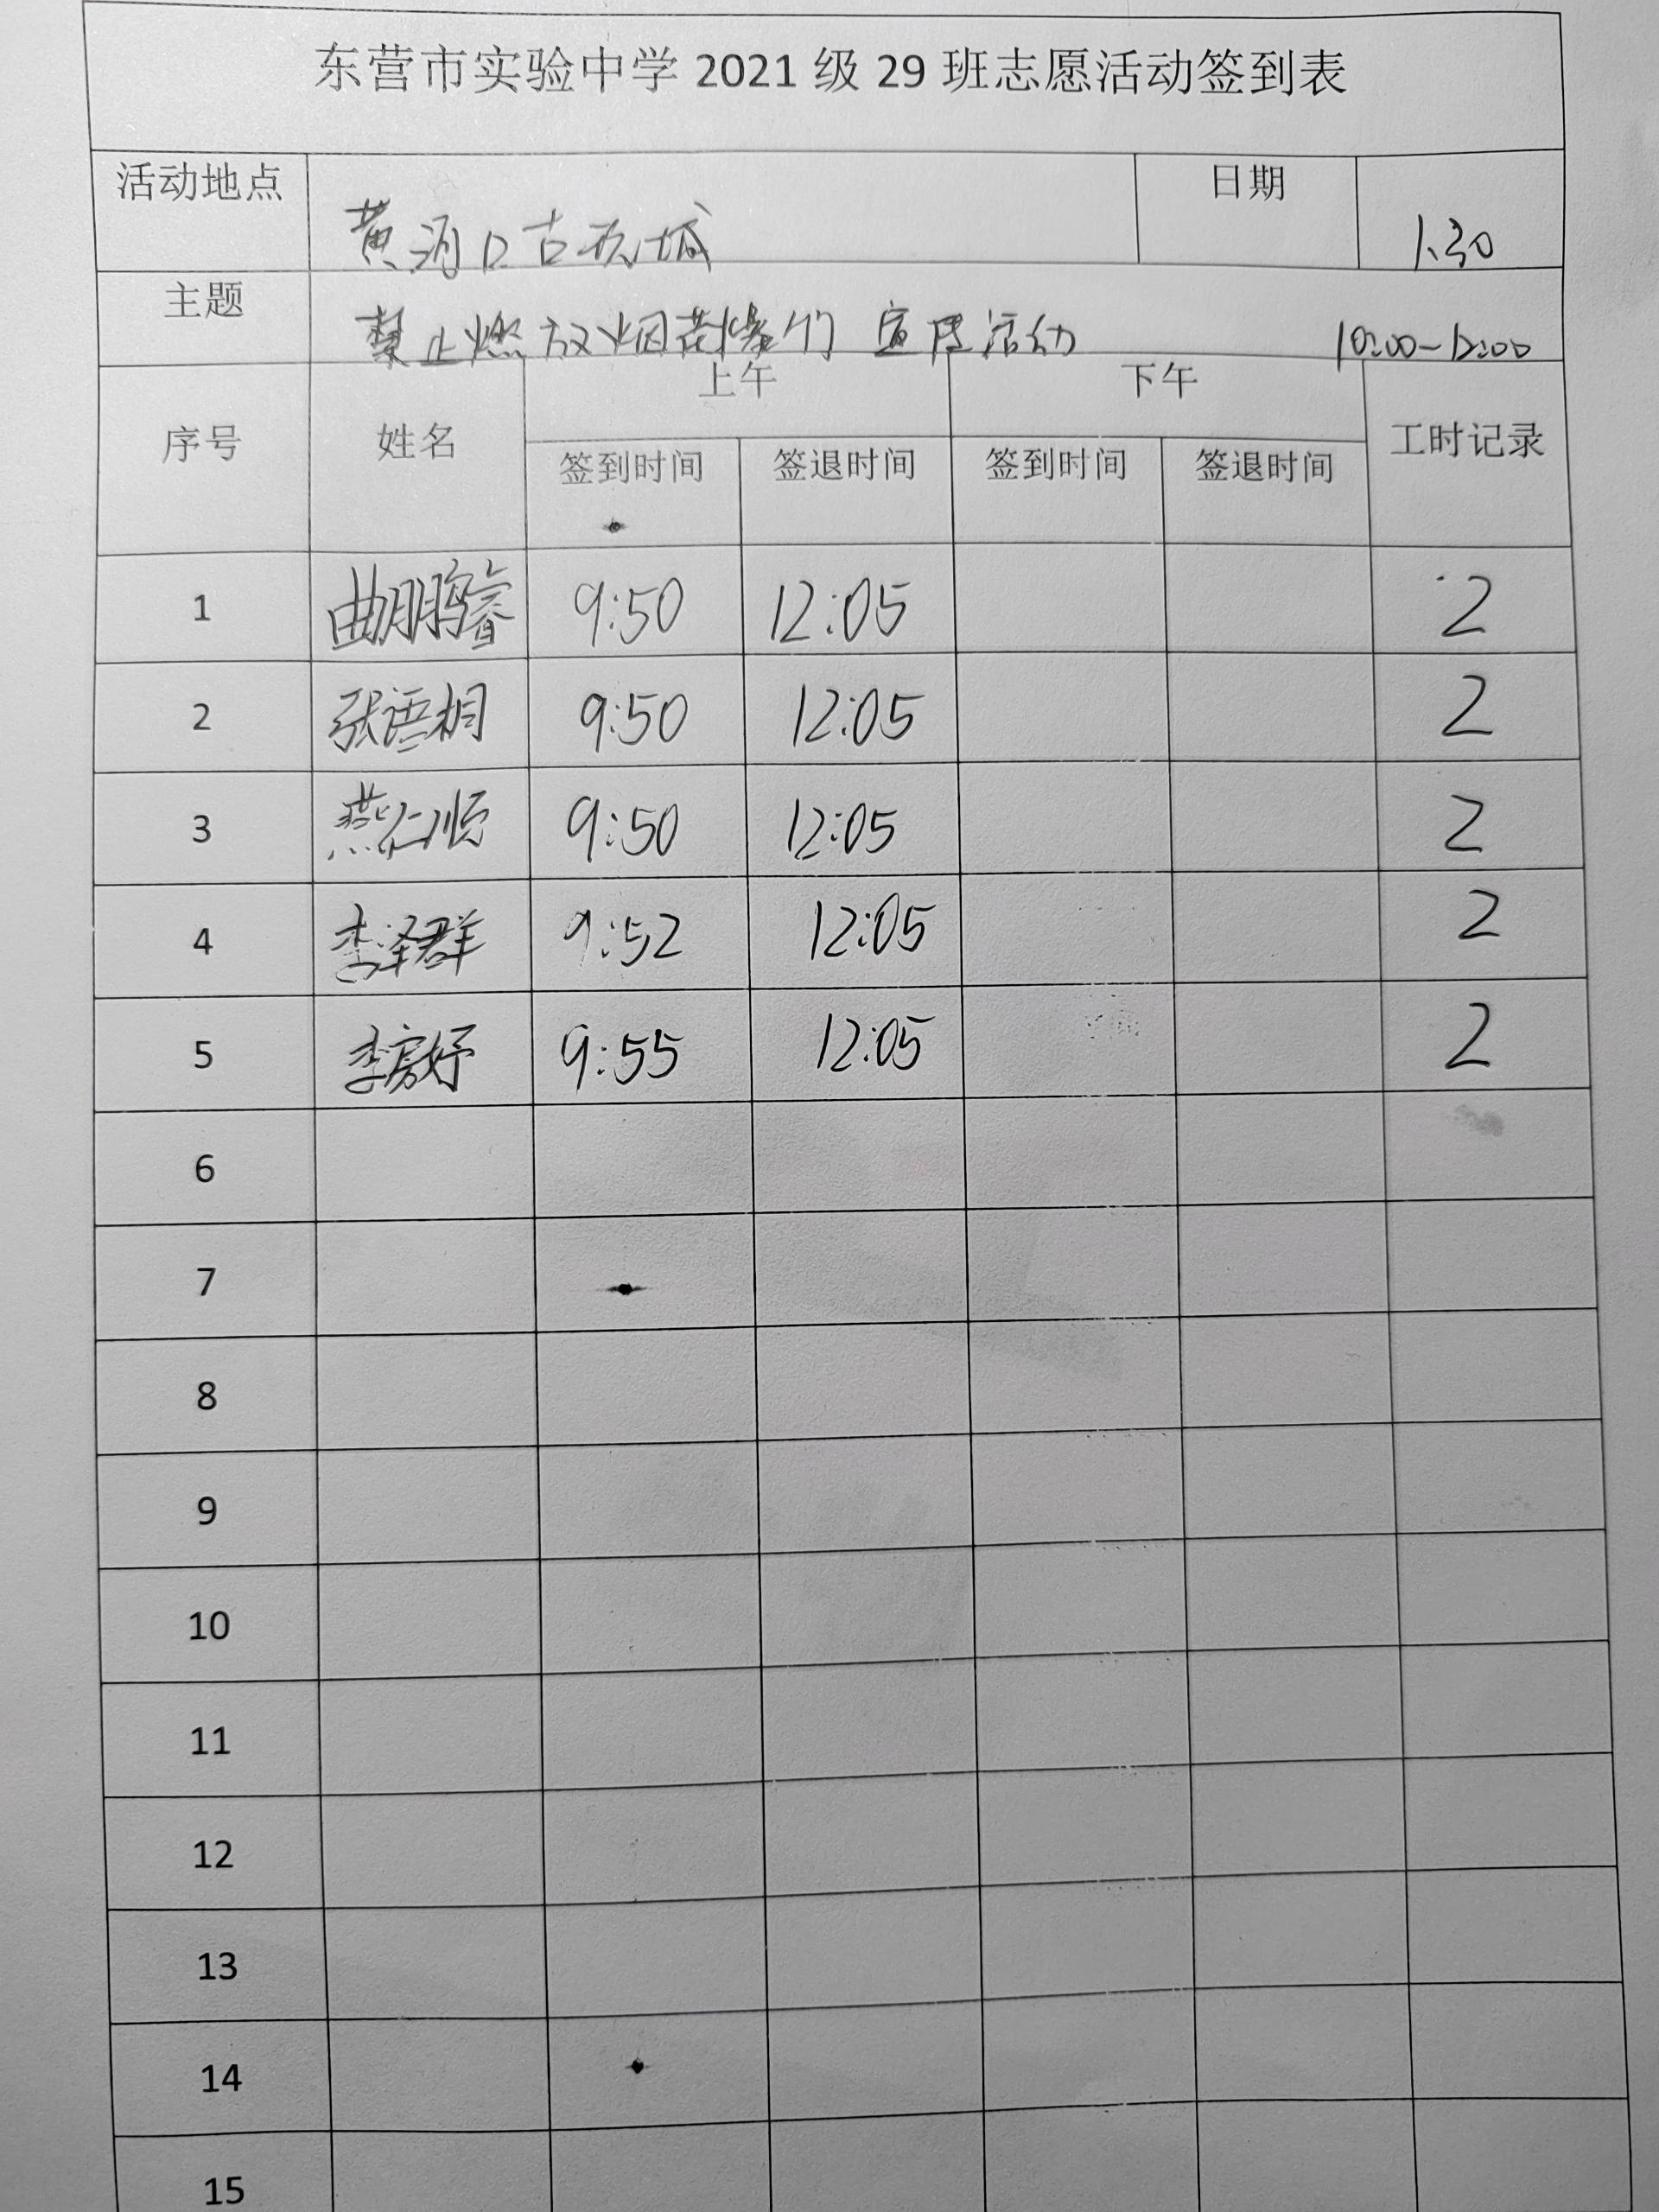 东营市实验中学 2021 级 29 班志愿活动签到表
活动地点 黄河口古玩城 日期 1.30
主题 禁止燃放烟花爆竹 宣传活动 10:00-12:00
序号 姓名 上午 下午 工时记录
签到时间 签退时间 签到时间 签退时间
1 曲鹏睿 9:50 12:05 2
2 张语桐 9:50 12:05 2
3 燕仁顺 9:50 12:05 2
4 李泽群 9:52 12:05 2
5 李房妤 9:55 12:05 2
6
7
8
9
10
11
12
13
14
15